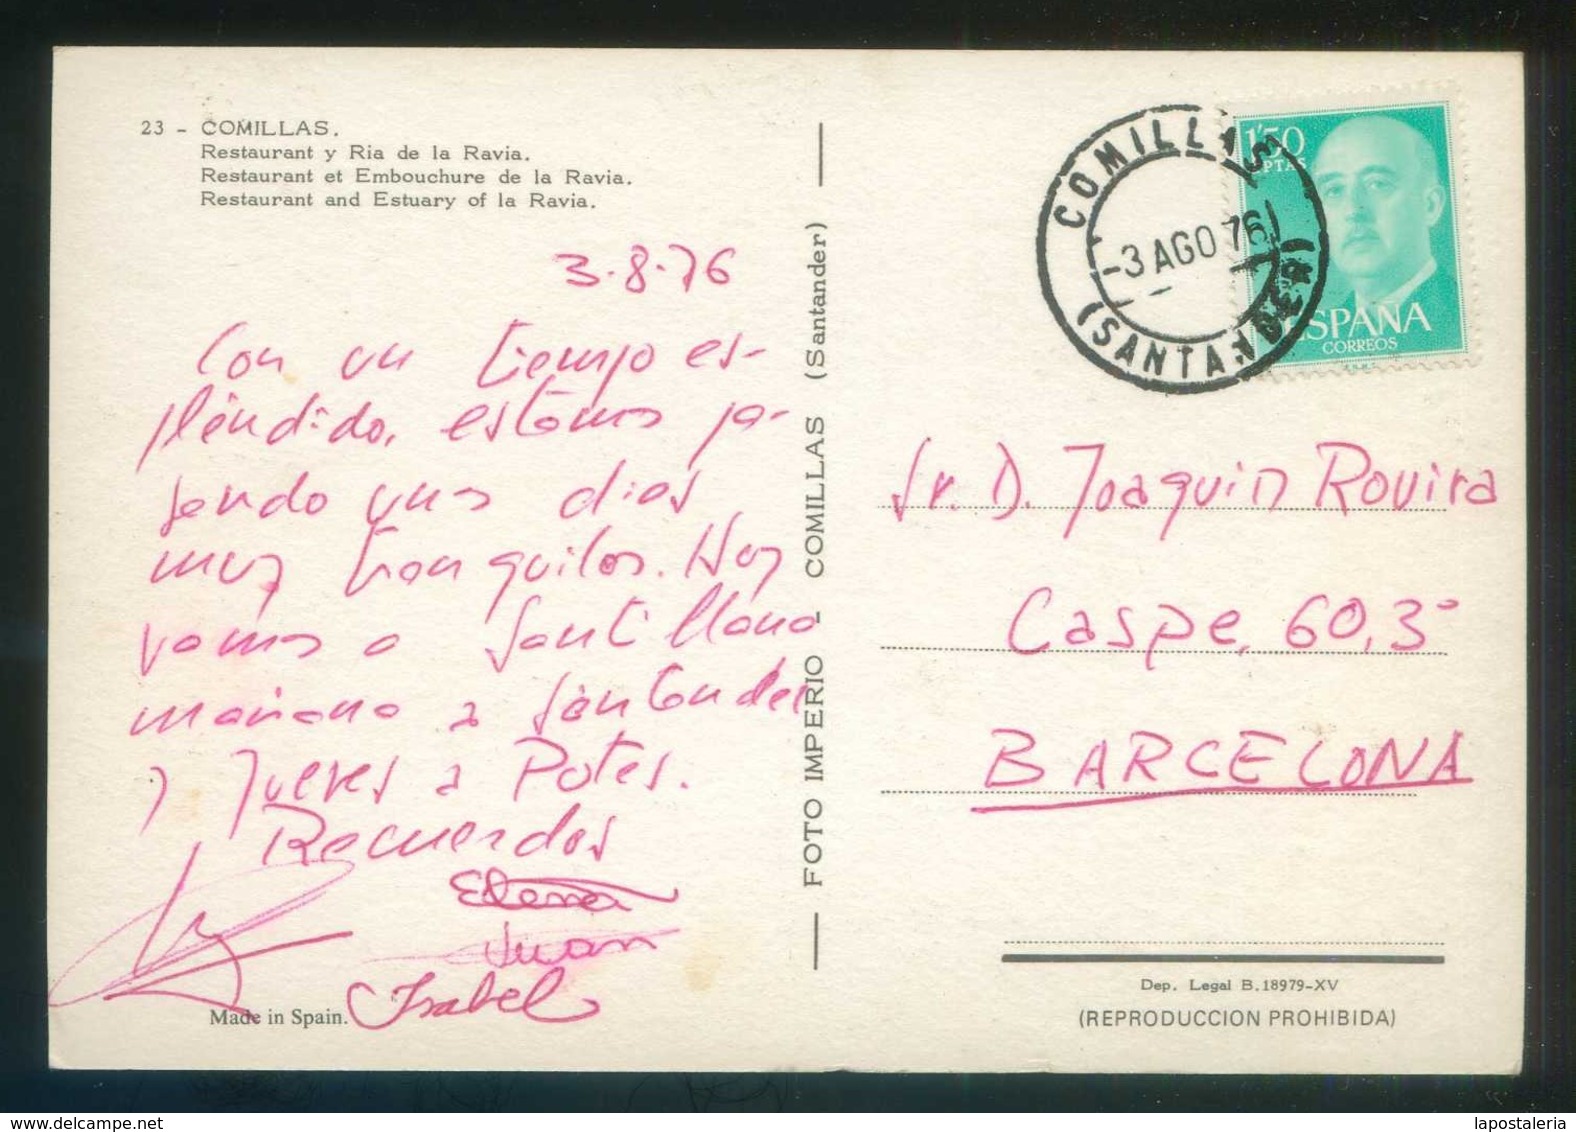 23 - COMILLAS.
Restaurant y Ria de la Ravia.
Restaurant et Embouchure de la Ravia.
Restaurant and Estuary of la Ravia.
3-8-76
Con un tiempo es-
pléndido, estamos pa-
sando unos dias
muy tranquilos. Hoy
vamos a Santillana
mañana a Santander
y jueves a Potes.
Recuerdos
Elena
Juan
Isabel
Made in Spain.
FOTO IMPERIO - COMILLAS (Santander)
COMILLAS
-3 AGO 76
(SANTANDER)
1'50
PTAS
ESPAÑA
CORREOS
Sr. D. Joaquin Rovira
Caspe, 60, 3º
BARCELONA
Dep. Legal B. 18979-XV
(REPRODUCCION PROHIBIDA)
lapostaleria